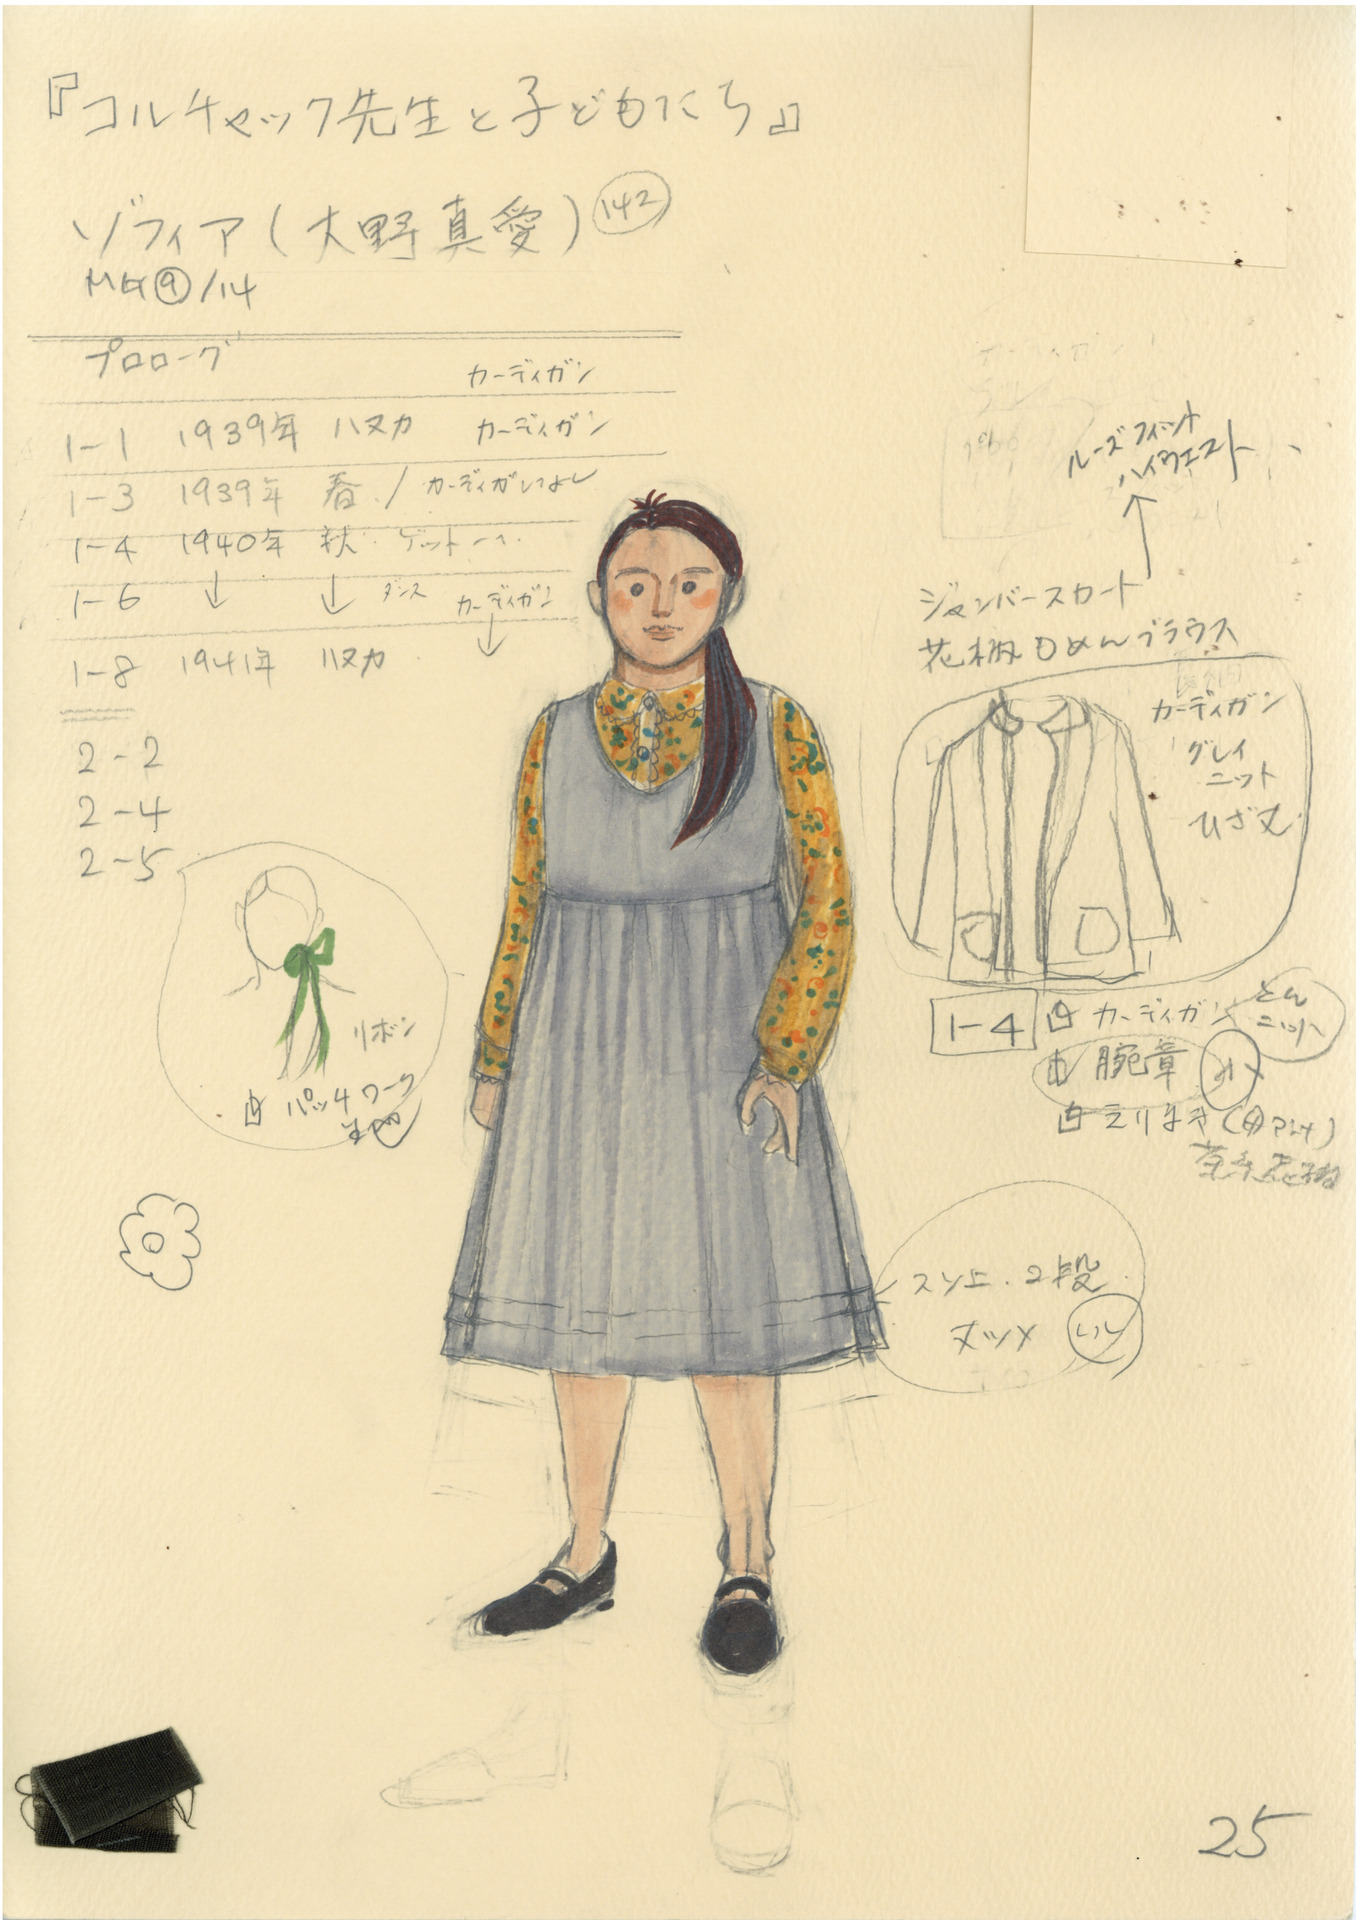 『コルチャック先生と子どもたち』
ゾフィア(大野真愛) 142
⑨/14
プロローグ カーディガン
1-1 1939年 ハヌカ カーディガン
1-3 1939年 春 / カーディガンなし
1-4 1940年 秋 ゲットーへ
1-6 ↓ ↓ ダンス カーディガン
↓
1-8 1941年 ハヌカ
2-2
2-4
2-5
リボン
パッチワーク
ルーズフィット
ハイウエスト
ジャンパースカート
花柄もめんブラウス
カーディガン
グレイ
ニット
ひざ丈
1-4 カーディガン
腕章
えりまき
スソ上.2段
丈ツメ
25